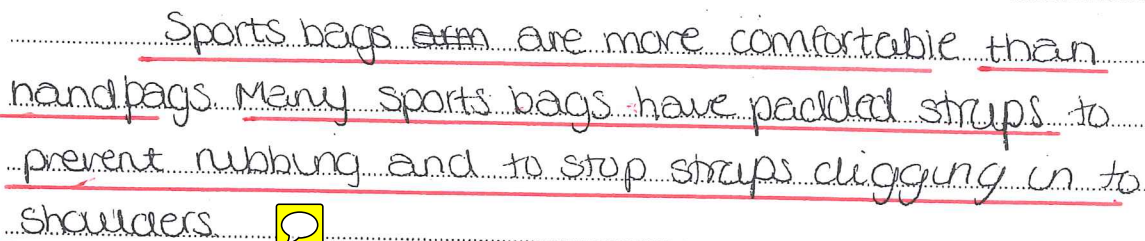 Sports bags arm are more comfortable than
handbags. Many sports bags have padded straps to
prevent rubbing and to stop straps digging in to
shoulders